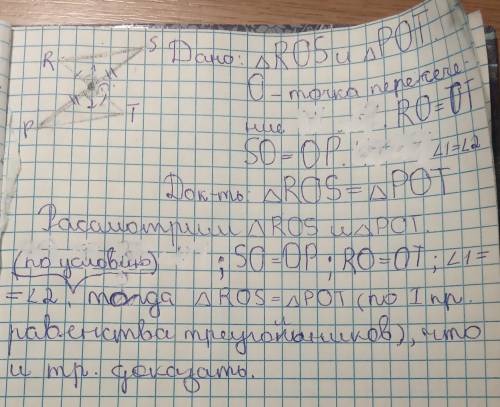 S Дано: △ROS и △POT.
R
O - точка пересече-
ние RO=OT
T
P
SO=OP. ∠1=∠2
Док-ть: △ROS=△POT
Рассмотрим △ROS и △POT.
(по условию) ; SO=OP ; RO=OT ; ∠1=
=∠2, тогда △ROS=△POT (по I пр.
равенства треугольников), что
и тр. доказать.